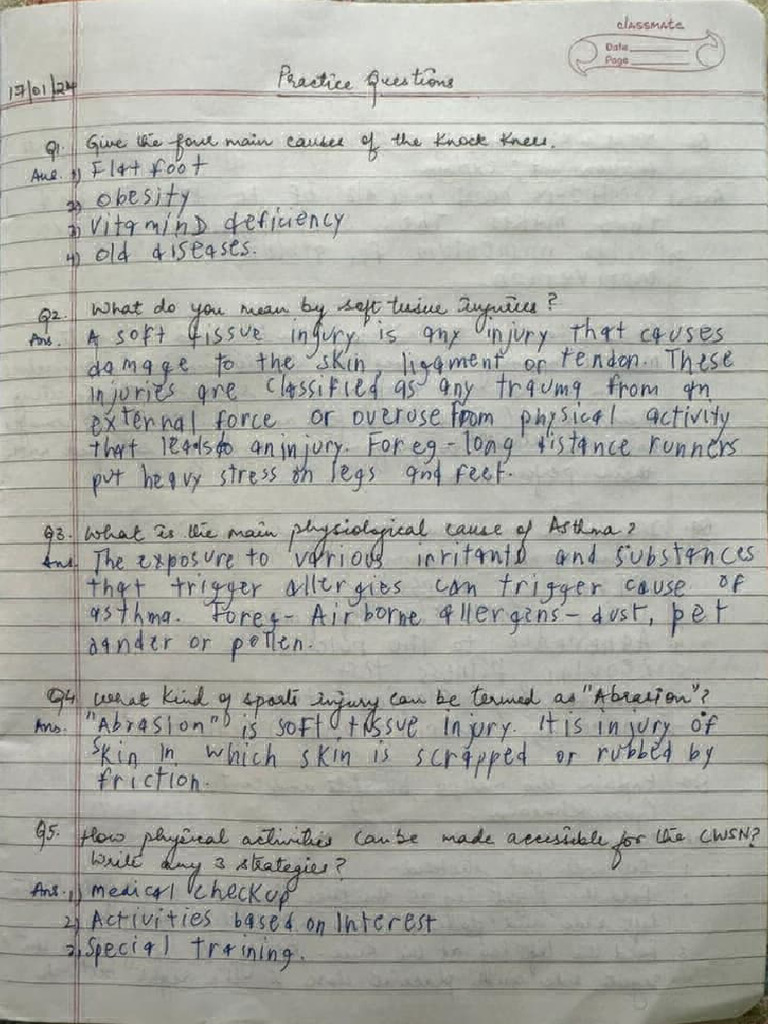 classmate
Date
Page
17/01/24
Practice Questions
Q1 Give the four main causes of the Knock Knees.
Ans. 1) Flat foot
2) obesity
3) vitaminD deficiency
4) old diseases.
Q2. What do you mean by soft tissue injuries?
Ans. A soft tissue injury is any injury that causes
damage to the skin, ligament or tendon. These
injuries are classified as any trauma from an
external force or overuse from physical activity
that leads to an injury. For eg - long distance runners
put heavy stress on legs and feet.
Q3. What is the main physiological cause of Asthma?
Ans. The exposure to various irritants and substances
that trigger allergies can trigger cause of
asthma. For eg - Airborne allergens - dust, pet
dander or pollen.
Q4 What kind of sports injury can be termed as "Abrasion"?
Ans. "Abrasion" is soft tissue injury. It is injury of
skin in which skin is scrapped or rubbed by
friction.
Q5. How physical activities can be made accessible for the CWSN?
Write any 3 strategies?
Ans. 1) medical checkup
2) Activities based on Interest
3) Special training.